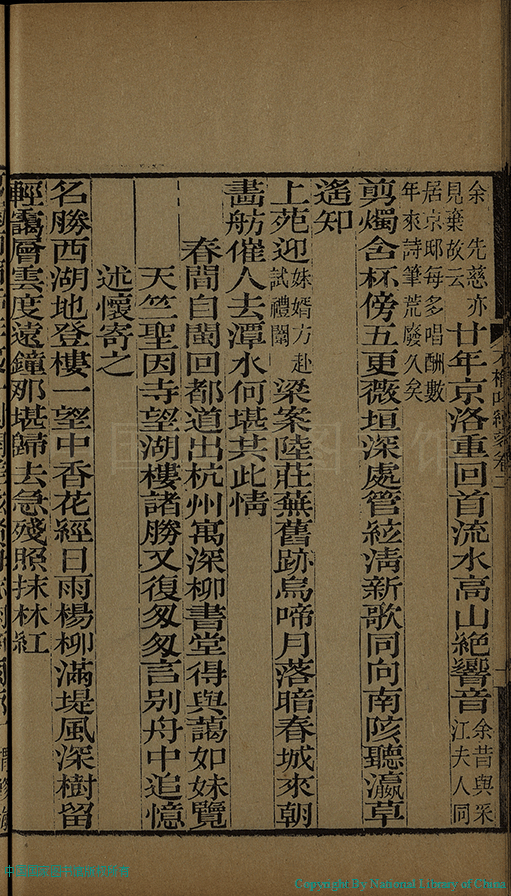 余先慈亦
見棄故云
廿年京洛重回首流水高山絕響音
余昔與采
江夫人同
居京邸每多唱酬數
年來詩筆荒廢久矣
剪燭含杯傍五更薇垣深處管絃淸新歌同向南陔聽瀛草
遙知
上苑迎
妹婿方赴
試禮闈
梁案陸莊蕪舊跡烏啼月落暗春城來朝
畵舫催人去潭水何堪共此情
春間自閩回都道出杭州寓深柳書堂得與藹如妹覽
天竺聖因寺望湖樓諸勝又復匆匆言别舟中追憶
述懷寄之
名勝西湖地登樓一望中香花經日雨楊柳滿堤風深樹留
輕靄層雲度遠鐘那堪歸去急殘照抹林紅
Copyright By National Library of China